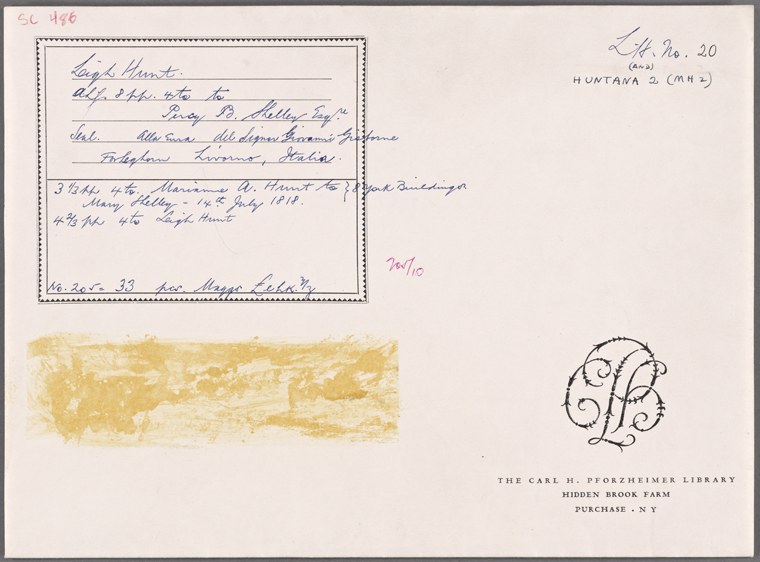 SC 486
L.H. No. 20
(AND)
HUNTANA 2 (MH2)
Leigh Hunt.
8 pp. 4to to
Percy B. Shelley Esqre
Seal. Alla Cura del Signor Giovanni Gisborne
Livorno, Italia.
3 1/3 pp 4to. Marianne A. Hunt to } 8 York Buildings
Mary Shelley - 14th July 1818.
4 2/3 pp 4to Leigh Hunt
No. 205 = 33 per. Maggs
205/10
THE CARL H. PFORZHEIMER LIBRARY
HIDDEN BROOK FARM
PURCHASE . NY